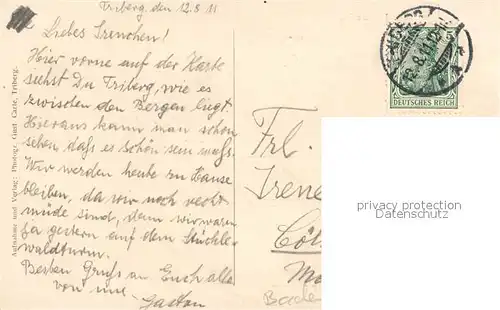 Triberg, den 12.8.11
Liebes Irenchen!
Hier vorne auf der Karte
siehst Du Triberg, wie es
zwischen den Bergen liegt
Hieraus kann man schon
sehen, daß es schön sein muß.
Wir werden heute zu Hause
bleiben, da wir noch recht
müde sind, denn wir waren
ja gestern auf dem Stöckle-
waldturm.
Besten Gruß an Euch alle
von mir
Gaston
Aufnahme und Verlag: Photogr. Gust. Carle, Triberg.
DEUTSCHES REICH
Frl.
Irene
Cöl
Baden
privacy protection
Datenschutz